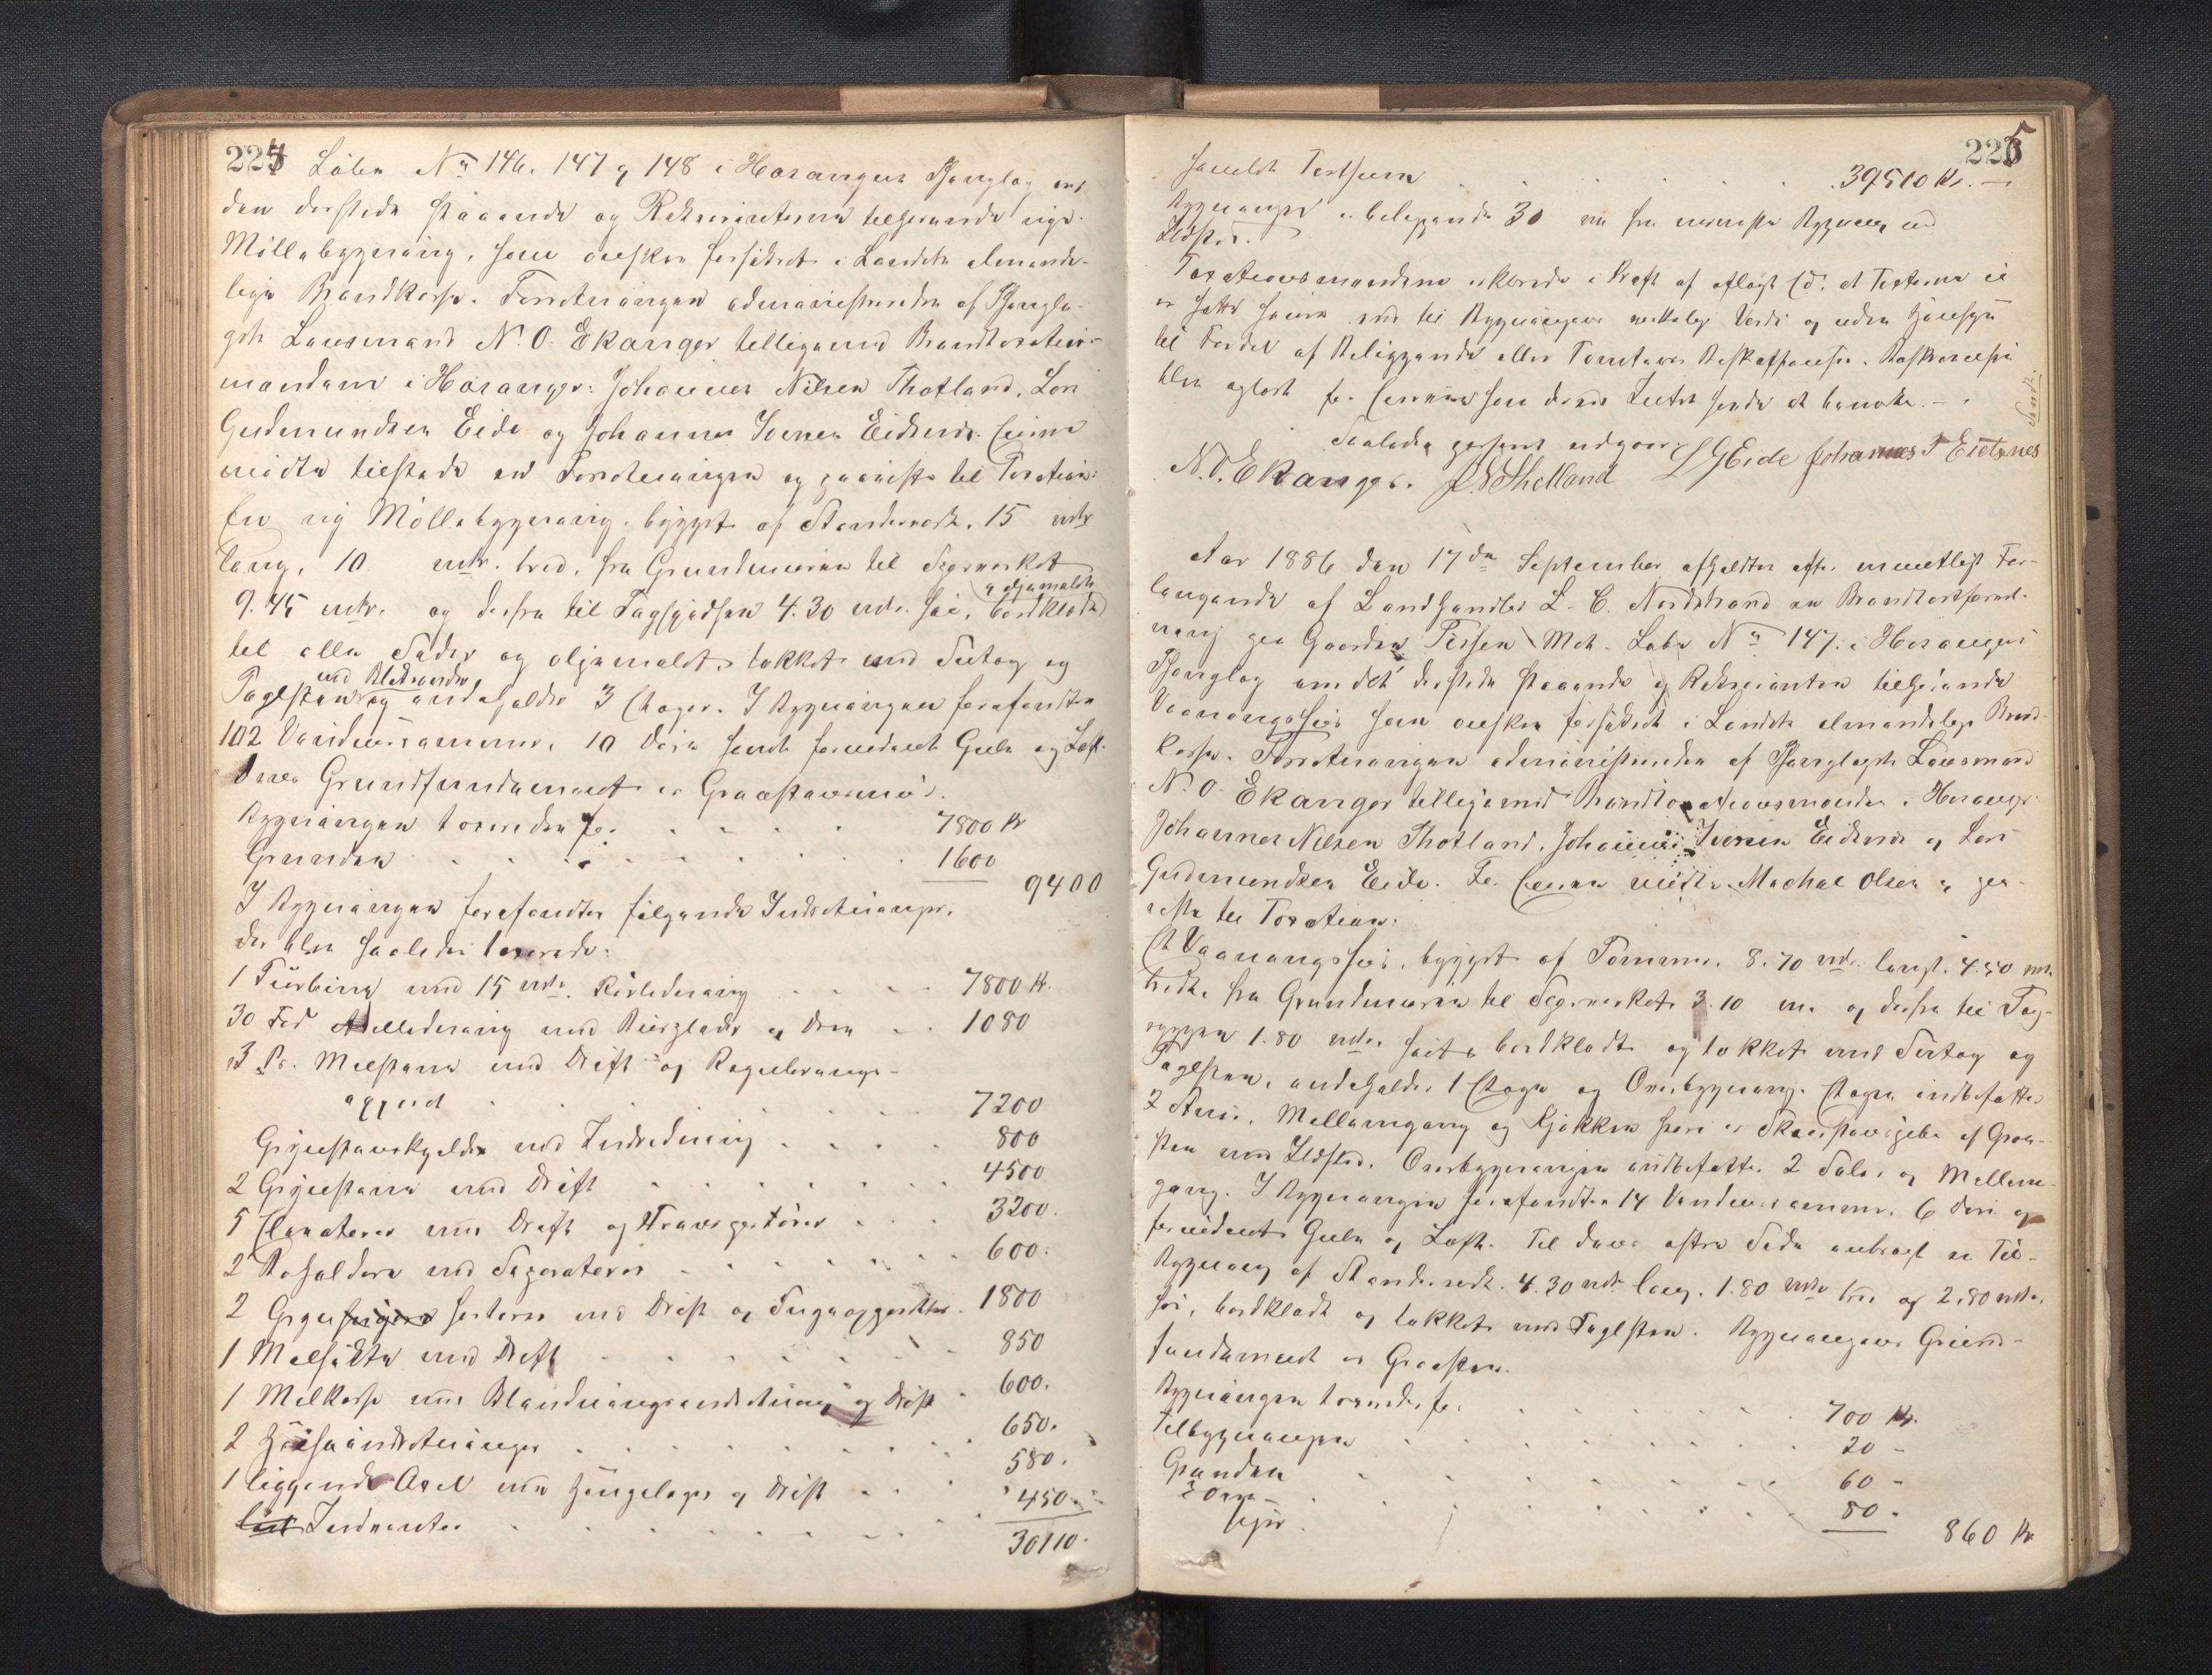 224
Löbe No 146. 147 og 148 i Hosangers Thinglag med
den dersteds staaende og Rekvirenterne tilhørende nye
Möllebygning, som önskes forsikret i Landets almindelige
Brandkasse. Forretningen administreredes af Thinglagets
Lensmand N. O. Ekanger tilligemed Brandtaxationsmændene
i Hosanger: Johannes Nilsen Thotland, Lars
Gudmundsen Eide og Johannes Iversen Eidsnes.
mödte tilstede ved Forretningen og paaviste til Taxation:
En ny Möllebygning, bygget af Standerværk, 15 mtr
lang, 10 mtr. bred, fra Grundmuren til Sperresket
9.45 mtr. og derfra til Tagspidsen 4.30 mtr. höi, bordklædt
a oljemalet
til alle Sider og oljemalet, tækket med Sutag og
Taglsten og indeholder 3 Etager. I Bygningen forefandtes
102 Vinduesrammer, 10 Döre samt fornödent Gulv og Loft.
Grundfundament er Graastensmur.
Bygningen taxeredes for . . . . . 7800 Kr
Grunden . . . . . . . . 1600
9400
I Bygningen forefandtes fölgende Indretninger,
der blev saaledes taxerede:
1 Turbine med 15 mtr. Rörledning . . . . 7800 Kr.
30 Fod Axelledning med og . . 1080
3 Pr. Melstene med Drift og Regulerings-
apparat . . . . . . . 7200
Grynstenskjelder med Indredning . . . . 800
2 Grynstene med Drift . . . . . . 4500
5 Elevatorer med Drift og Transportörer . . . 3200.
2 Beholdere med Separatorer . . . . . 600.
2 Gryn sorterer med Drift og . 1800
1 Melsigte med Drift . . . . . . 850
1 Melkasse med Blandningsindretning og Drift . 600.
2 Heiseindretninger . . . . . . . 650.
1 liggende Axel med Hængelager og Drift . . . 580.
Inventar . . . . . . . . . 450.
30110.
225
Samlet Takstsum . . . . . . . 39510 Kr.
Bygningen er beliggende 30 m fra nærmeste Bygning med
Ildsted.
Taxationsmændene erklærede i Kraft af aflagt Ed, at Taxterne ei
er satte höiere end til Bygningens virkelige Værdi og uden Hensyn
til Fordel af Beliggende eller Tomtens Beskaffenhed. Beskrivelsen
blev oplæst for som dertil Intet havde at bemærke.
Saaledes passeret udgaar.
Sendt.
N. O. Ekanger. J N Thotland L G Eide Johannes I Eidsnes
Aar 1886 den 17de September afholdtes efter mundtligt For-
langende af Landhandler L. C. Nordstrand en Brandtaxtforret-
ning paa Gaarden Tissen Mat. Löbe No 147. i Hosangers
Thinglag om det dersteds staaende og Rekvirenten tilhörende
Vaaningshus som önskes forsikret i Landets almindelige Brand-
kasse. Forretningen administreredes af Thinglagets Lensmand
N. O. Ekanger tilligemed Brandtaxationsmændene i Hosanger
Johannes Nilsen Thotland, Johannes Iversen Eidsnes og Lars
Gudmundsen Eide. For mödte Mathæ Olsen og paa-
viste til Taxation:
Et Vaaningshus, bygget af Tömmer. 8.70 mtr. langt. 4.50 mtr.
bredt, fra Grundmuren til Sperresket 3.10 m. og derfra til Tag-
ryggen 1.80 mtr. höit, bordklædt og tækket med Sutag og
Taglsten, indeholder 1 Etage og Overbygning. Etagen indbefatter
2 Stuer, Mellemgang og Kjökken hvori er Skorstenspibe af Graa-
sten med Ildsted. Overbygningen indbefatter 2 Sale og Mellem-
gang. I Bygningen forefandtes 14 Vinduesrammer. 6 Döre og
fornödent Gulv og Loft. Til dens östre Side anbragt en Til-
bygning af Standerværk. 4.30 mtr lang. 1.80 mtr bred og 2.80 mtr.
höi, bordklædt og tækket med Taglsten. Bygningens Grund-
fundament er Graasten.
Bygningen taxeredes for . . . . . 700 Kr.
Tilbygningen . . . . . . . 20 -
Grunden . . . . . . . . 60 -
2 Ovne . . . . . . . . 80 -
860 Kr